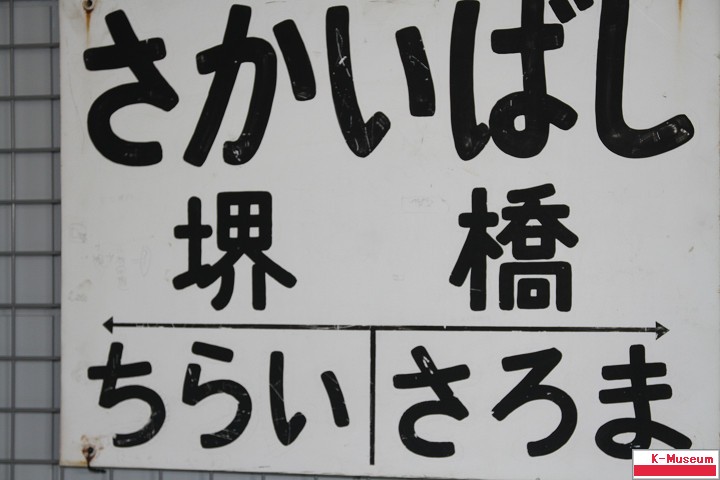 さかいばし
堺橋
ちらい さろま
K-Museum